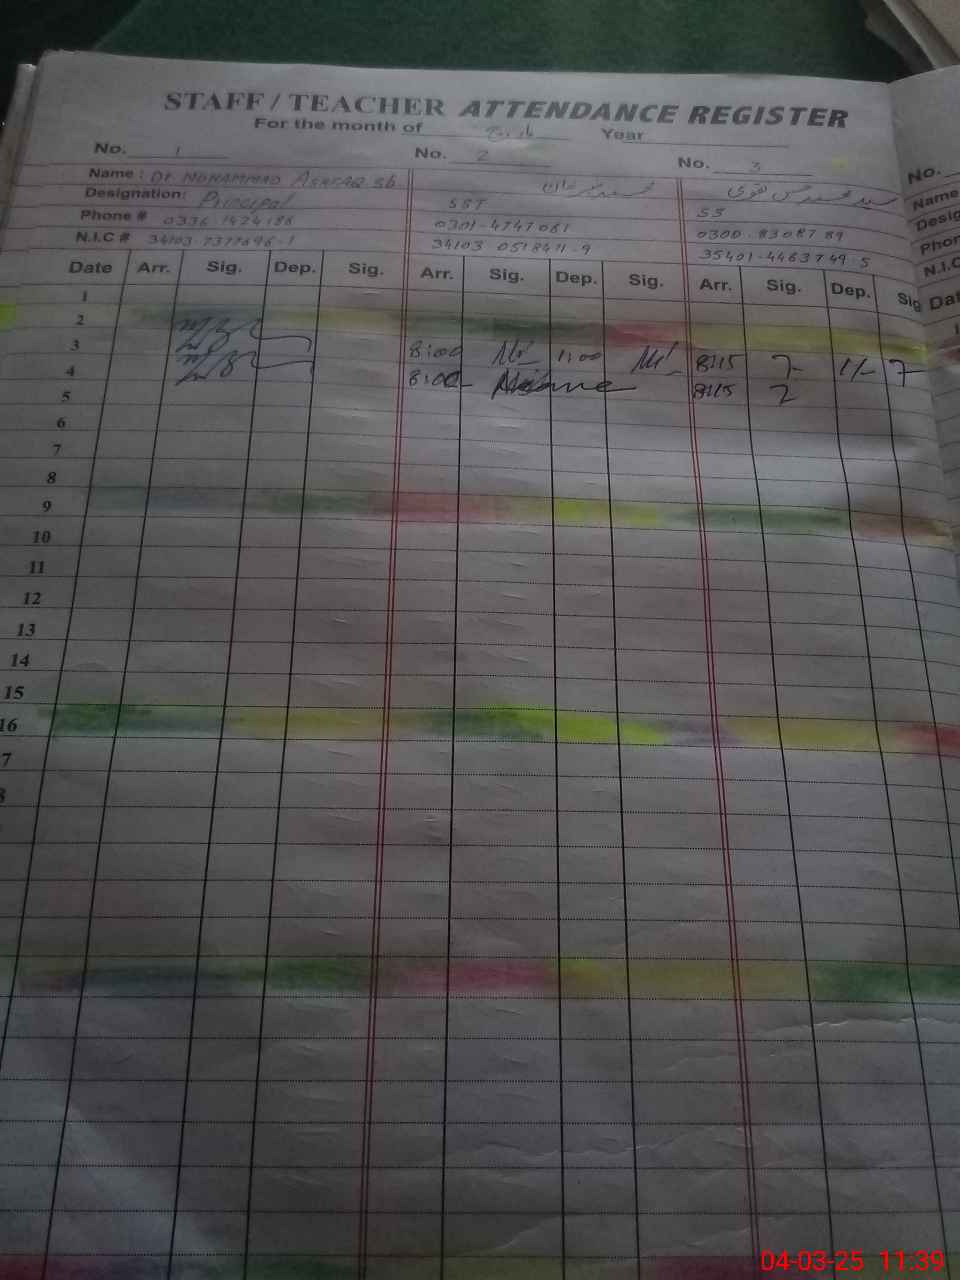 STAFF / TEACHER ATTENDANCE REGISTER
For the month of مارچ Year
No. 1 No. 2 No. 3 No.
Name : Dr MUHAMMAD ASHFAQ sb سید محسن نقوی Name
Designation: Principal SST SS Desig
Phone # 0336 1424188 0301-4747061 0300-8308789 Phon
N.I.C # 34103-7377696-1 34103 0518411-9 35401-4463749-5 N.I.C
Date Arr. Sig. Dep. Sig. Arr. Sig. Dep. Sig. Arr. Sig. Dep. Sig Dat
1
2
3 8:00 11:00 8:15 11/-
4 8:00 8:15
5
6
7
8
9
10
11
12
13
14
15
16
7
8
04-03-25 11:39